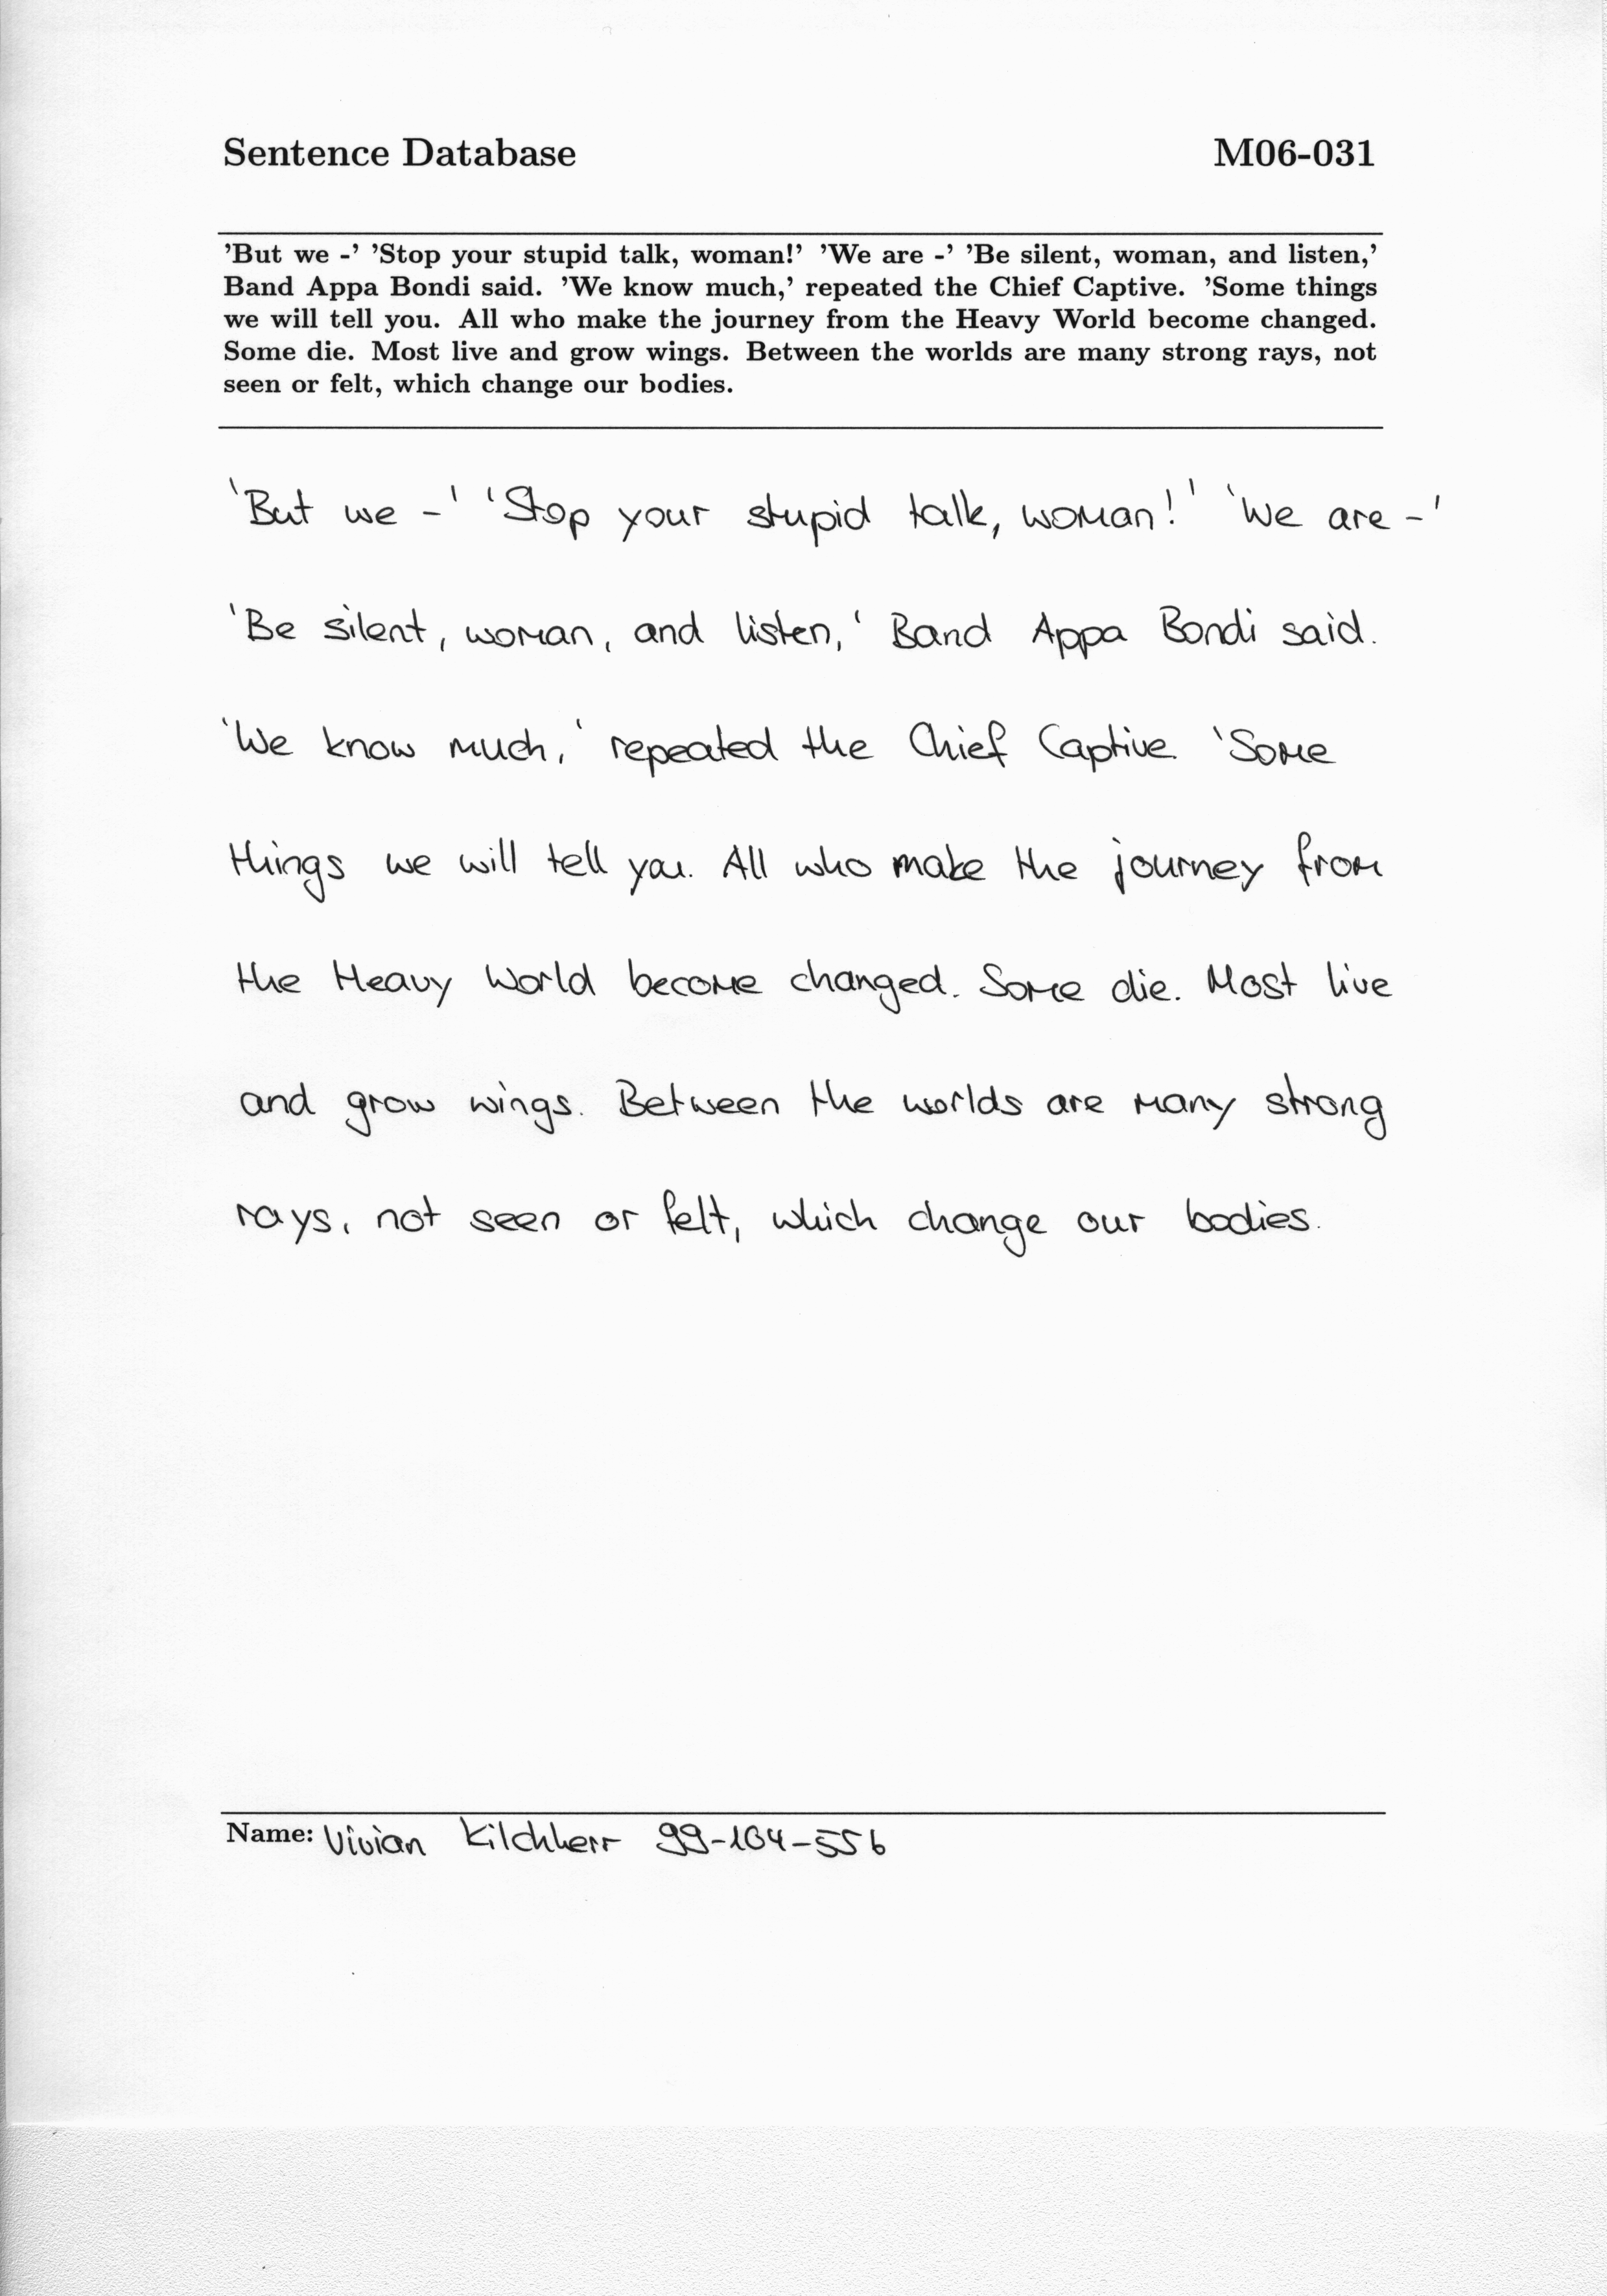 Sentence Database M06-031
'But we -' 'Stop your stupid talk, woman!' 'We are -' 'Be silent, woman, and listen,'
Band Appa Bondi said. 'We know much,' repeated the Chief Captive. 'Some things
we will tell you. All who make the journey from the Heavy World become changed.
Some die. Most live and grow wings. Between the worlds are many strong rays, not
seen or felt, which change our bodies.
'But we -' 'Stop your stupid talk, woman!' 'We are -'
'Be silent, woman, and listen,' Band Appa Bondi said.
'We know much,' repeated the Chief Captive. 'Some
things we will tell you. All who make the journey from
the Heavy World become changed. Some die. Most live
and grow wings. Between the worlds are many strong
rays, not seen or felt, which change our bodies.
Name: Vivian Kilchherr 99-104-556